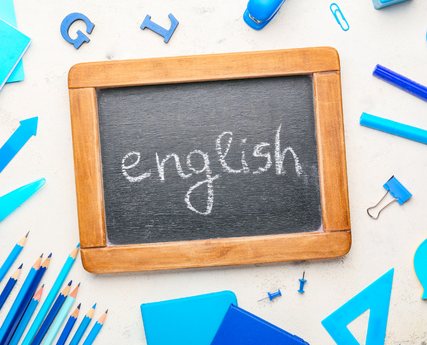 G L
english